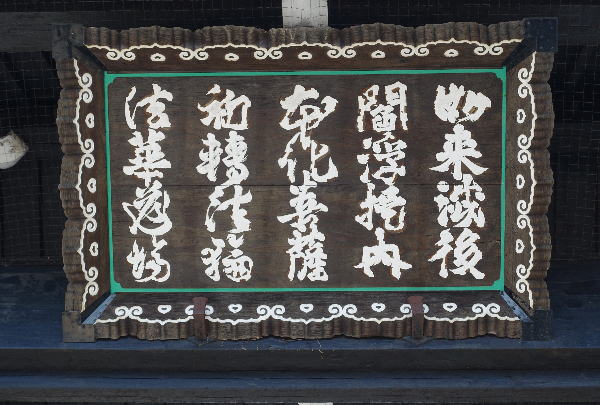 如来滅後
閻浮提内
本化菩薩
初轉法輪
法華道場